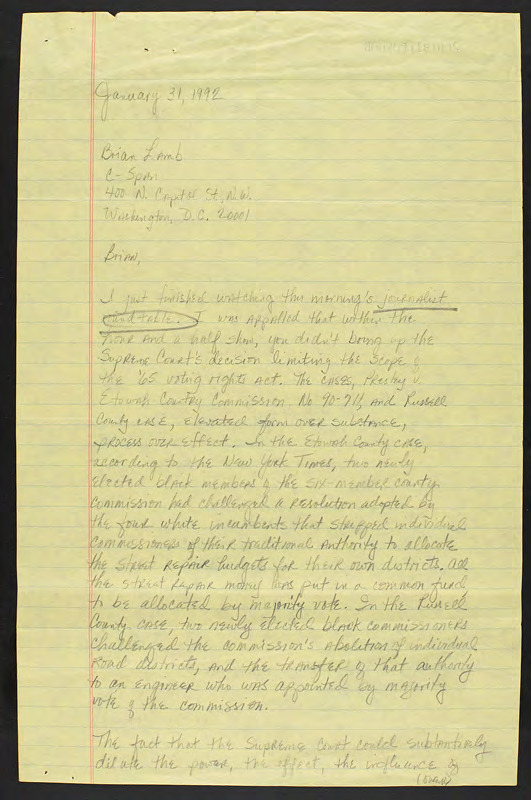 January 31, 1992
Brian Lamb
C-Span
400 N. Capitol St, N.W.
Washington, D.C. 20001
Brian,
I just finished watching this morning's journalist
roundtable. I was appalled that within the
hour and a half show, you didn't bring up the
Supreme Court's decision limiting the scope of
the '65 voting rights act. The cases, Presley v.
Etowah County Commission No 90-711, and Russell
County case, elevated form over substance,
process over effect. In the Etowah County case,
according to the New York Times, two newly
elected black members of the six-member county
commission had challenged a resolution adopted by
the four white incumbents that stripped individual
commissioners of their traditional authority to allocate
the street repair budgets for their own districts. All
the street repair money was put in a common fund
to be allocated by majority vote. In the Russell
County case, two newly elected black commissioners
challenged the commission's abolition of individual
road districts, and the transfer of that authority
to an engineer who was appointed by majority
vote of the commission.
The fact that the Supreme Court could substantively
dilute the power, the effect, the influence of
(over)